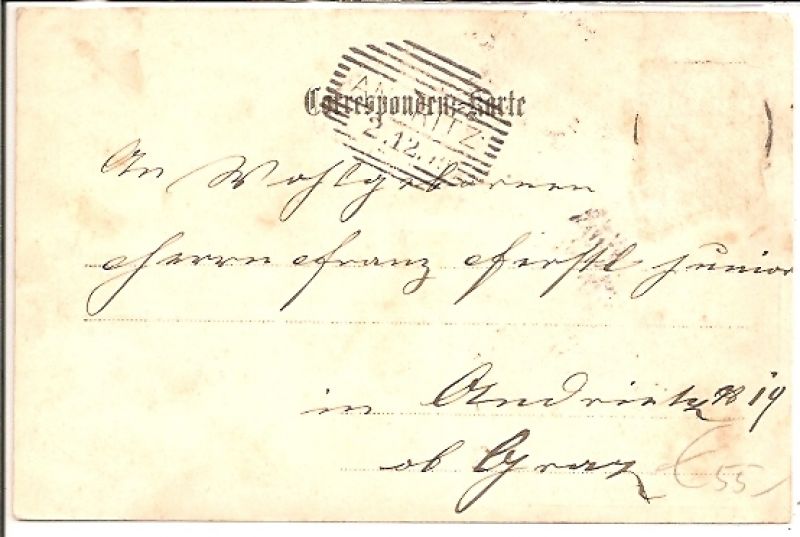 Correspondenz-Karte
2.12.
An Wohlgebornen
Herrn Franz Ferstl junior
in Andritz № 19
ob Graz
€ 55,-